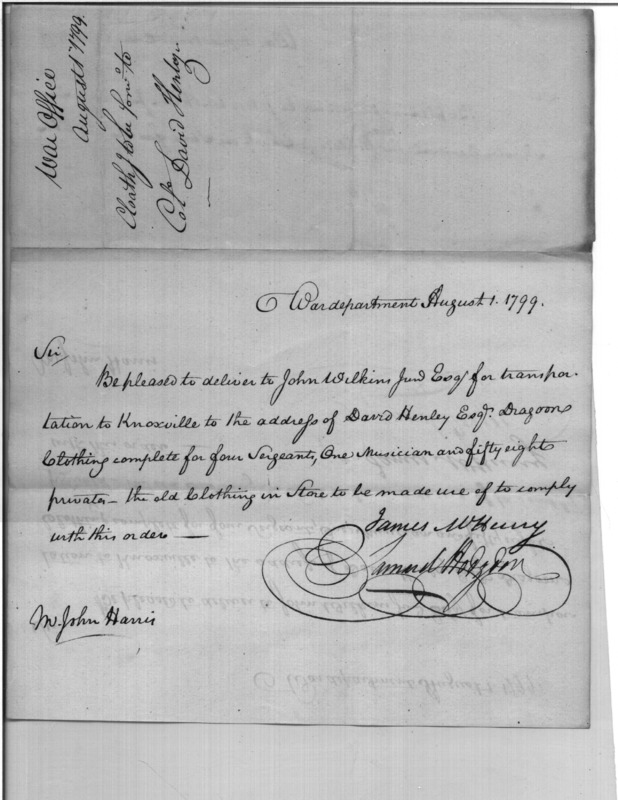 War Office
August 1st 1799
Cloathg to be sent to
Col. David Henley
War department August 1. 1799.
Sir
Be pleased to deliver to John Wilkins Junr Esqr for transpor-
tation to Knoxville to the address of David Henley Esqr. Dragoon
Clothing complete for four Sergeants, One Musician and fifty eight
privates – the old Clothing in Store to be made use of to comply
with this order —
James McHenry
Samuel Hodgdon
Mr. John Harris